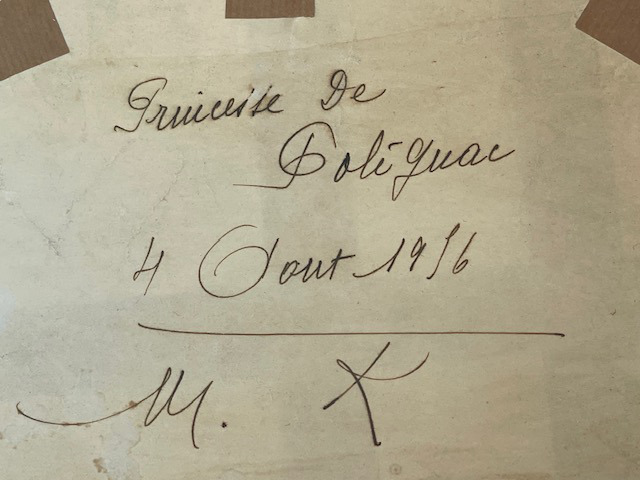 Princesse De
Polignac
4 Aout 1956
M. K